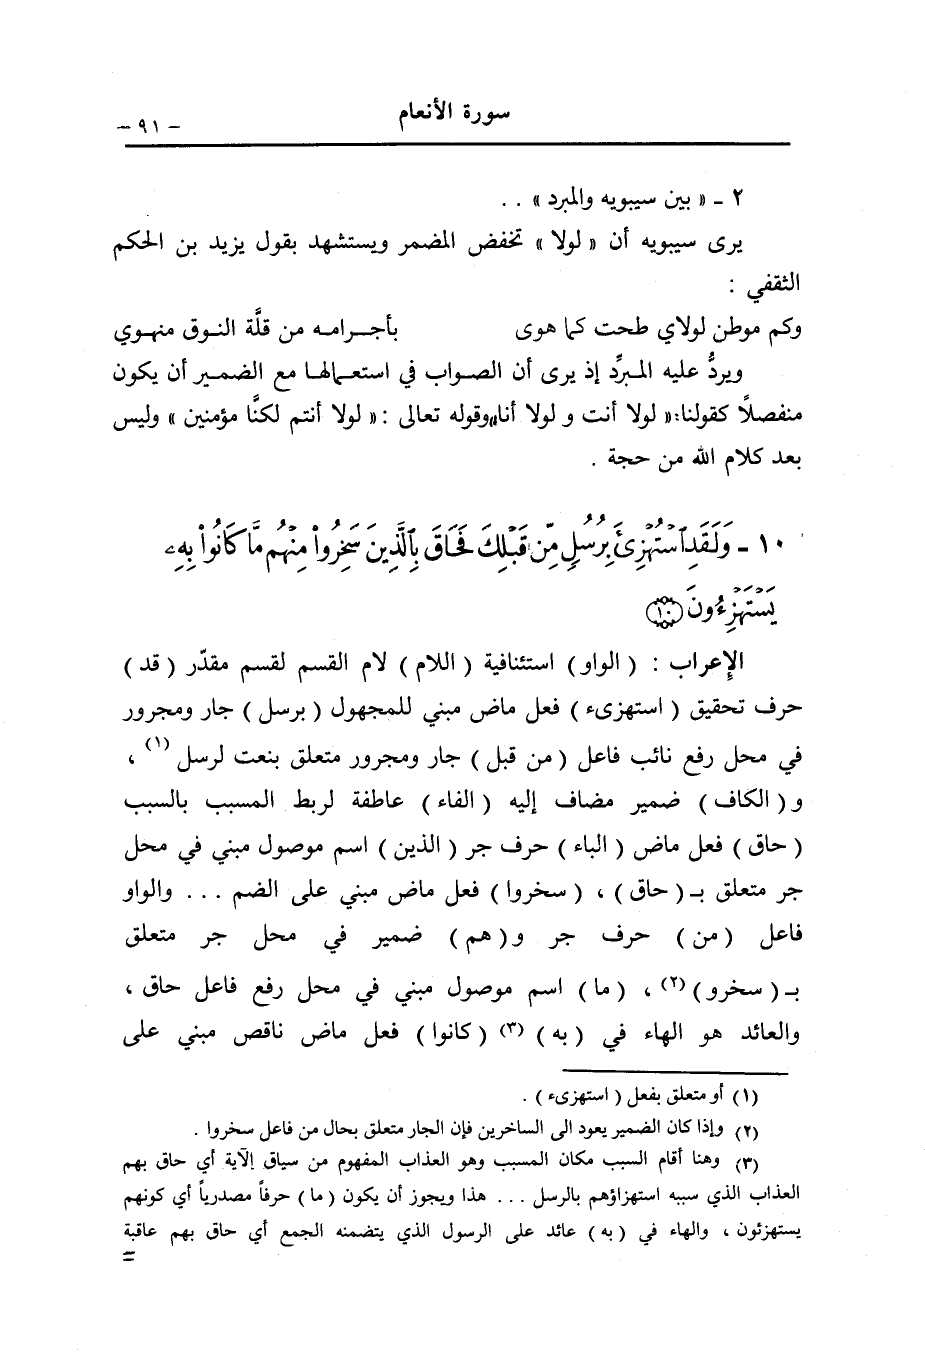 سورة الأنعام
- ٩١ -
٢ - « بين سيبويه والمبرد » . .
يرى سيبويه أن « لولا » تخفض المضمر ويستشهد بقول يزيد بن الحكم
الثقفي :
وكم موطن لولاي طحت كما هوى بأجـرامـه من قلَّة النـوق منهـوي
ويردُّ عليه المبرِّد إذ يرى أن الصواب في استعمالها مع الضمير أن يكون
منفصلاً كقولنا:« لولا أنت و لولا أنا»وقوله تعالى :« لولا أنتم لكنَّا مؤمنين » وليس
بعد كلام الله من حجة .
١٠ - وَلَقَدِ ٱسْتُهْزِئَ بِرُسُلٍ مِّن قَبْلِكَ فَحَاقَ بِٱلَّذِينَ سَخِرُواْ مِنْهُم مَّا كَانُواْ بِهِۦ
يَسْتَهْزِءُونَ ١٠
الإعراب : ( الواو ) استئنافية ( اللام ) لام القسم لقسم مقدّر ( قد )
حرف تحقيق ( استهزىء ) فعل ماض مبني للمجهول ( برسل ) جار ومجرور
في محل رفع نائب فاعل ( من قبل ) جار ومجرور متعلق بنعت لرسل (١) ،
و ( الكاف ) ضمير مضاف إليه ( الفاء ) عاطفة لربط المسبب بالسبب
( حاق ) فعل ماض ( الباء ) حرف جر ( الذين ) اسم موصول مبني في محل
جر متعلق بـ ( حاق ) ، ( سخروا ) فعل ماض مبني على الضم . . . والواو
فاعل ( من ) حرف جر و ( هم ) ضمير في محل جر متعلق
بـ ( سخرو ) (٢) ، ( ما ) اسم موصول مبني في محل رفع فاعل حاق ،
والعائد هو الهاء في ( به ) (٣) ( كانوا ) فعل ماض ناقص مبني على
(١) أو متعلق بفعل ( استهزىء ) .
(٢) وإذا كان الضمير يعود الى الساخرين فإن الجار متعلق بحال من فاعل سخروا .
(٣) وهنا أقام السبب مكان المسبب وهو العذاب المفهوم من سياق الآية أي حاق بهم
العذاب الذي سببه استهزاؤهم بالرسل . . . هذا ويجوز أن يكون ( ما ) حرفاً مصدرياً أي كونهم
يستهزئون ، والهاء في ( به ) عائد على الرسول الذي يتضمنه الجمع أي حاق بهم عاقبة
=